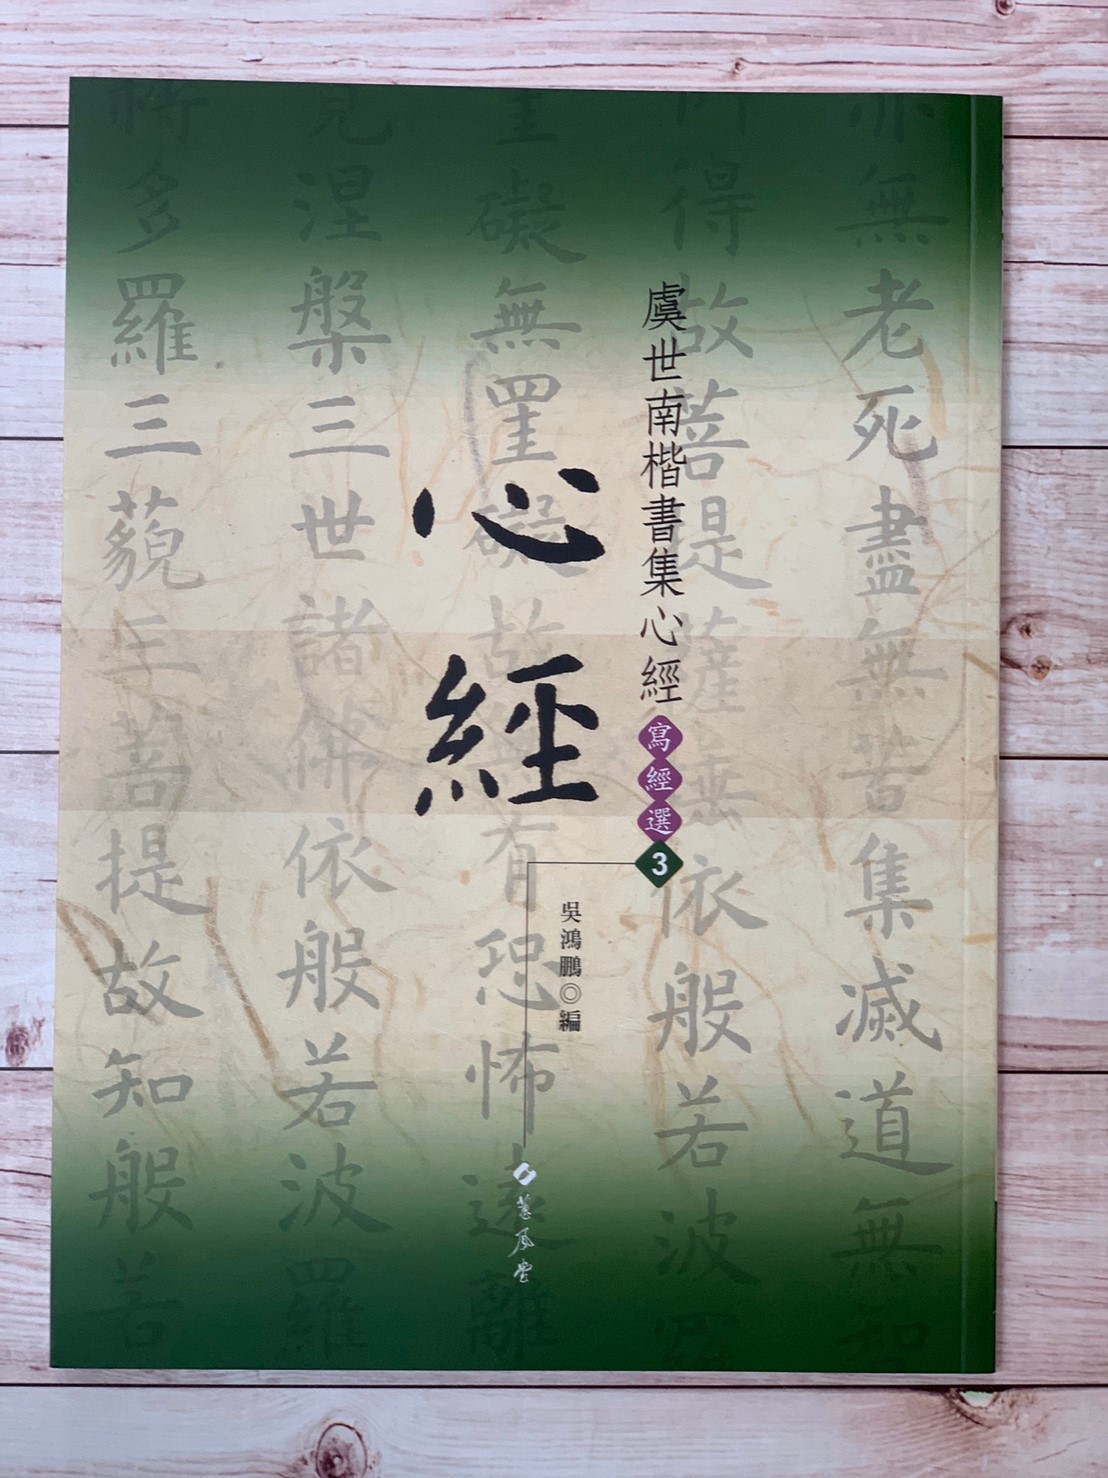 亦無老死盡無苦集滅道無智
所得故菩提薩埵依般若波羅
罣礙無罣礙故無有恐怖遠離
見涅槃三世諸佛依般若波羅
多羅三藐三菩提故知般若
虞世南楷書集心經
寫經選3
心經
吳鴻鵬◎編
蕙風堂